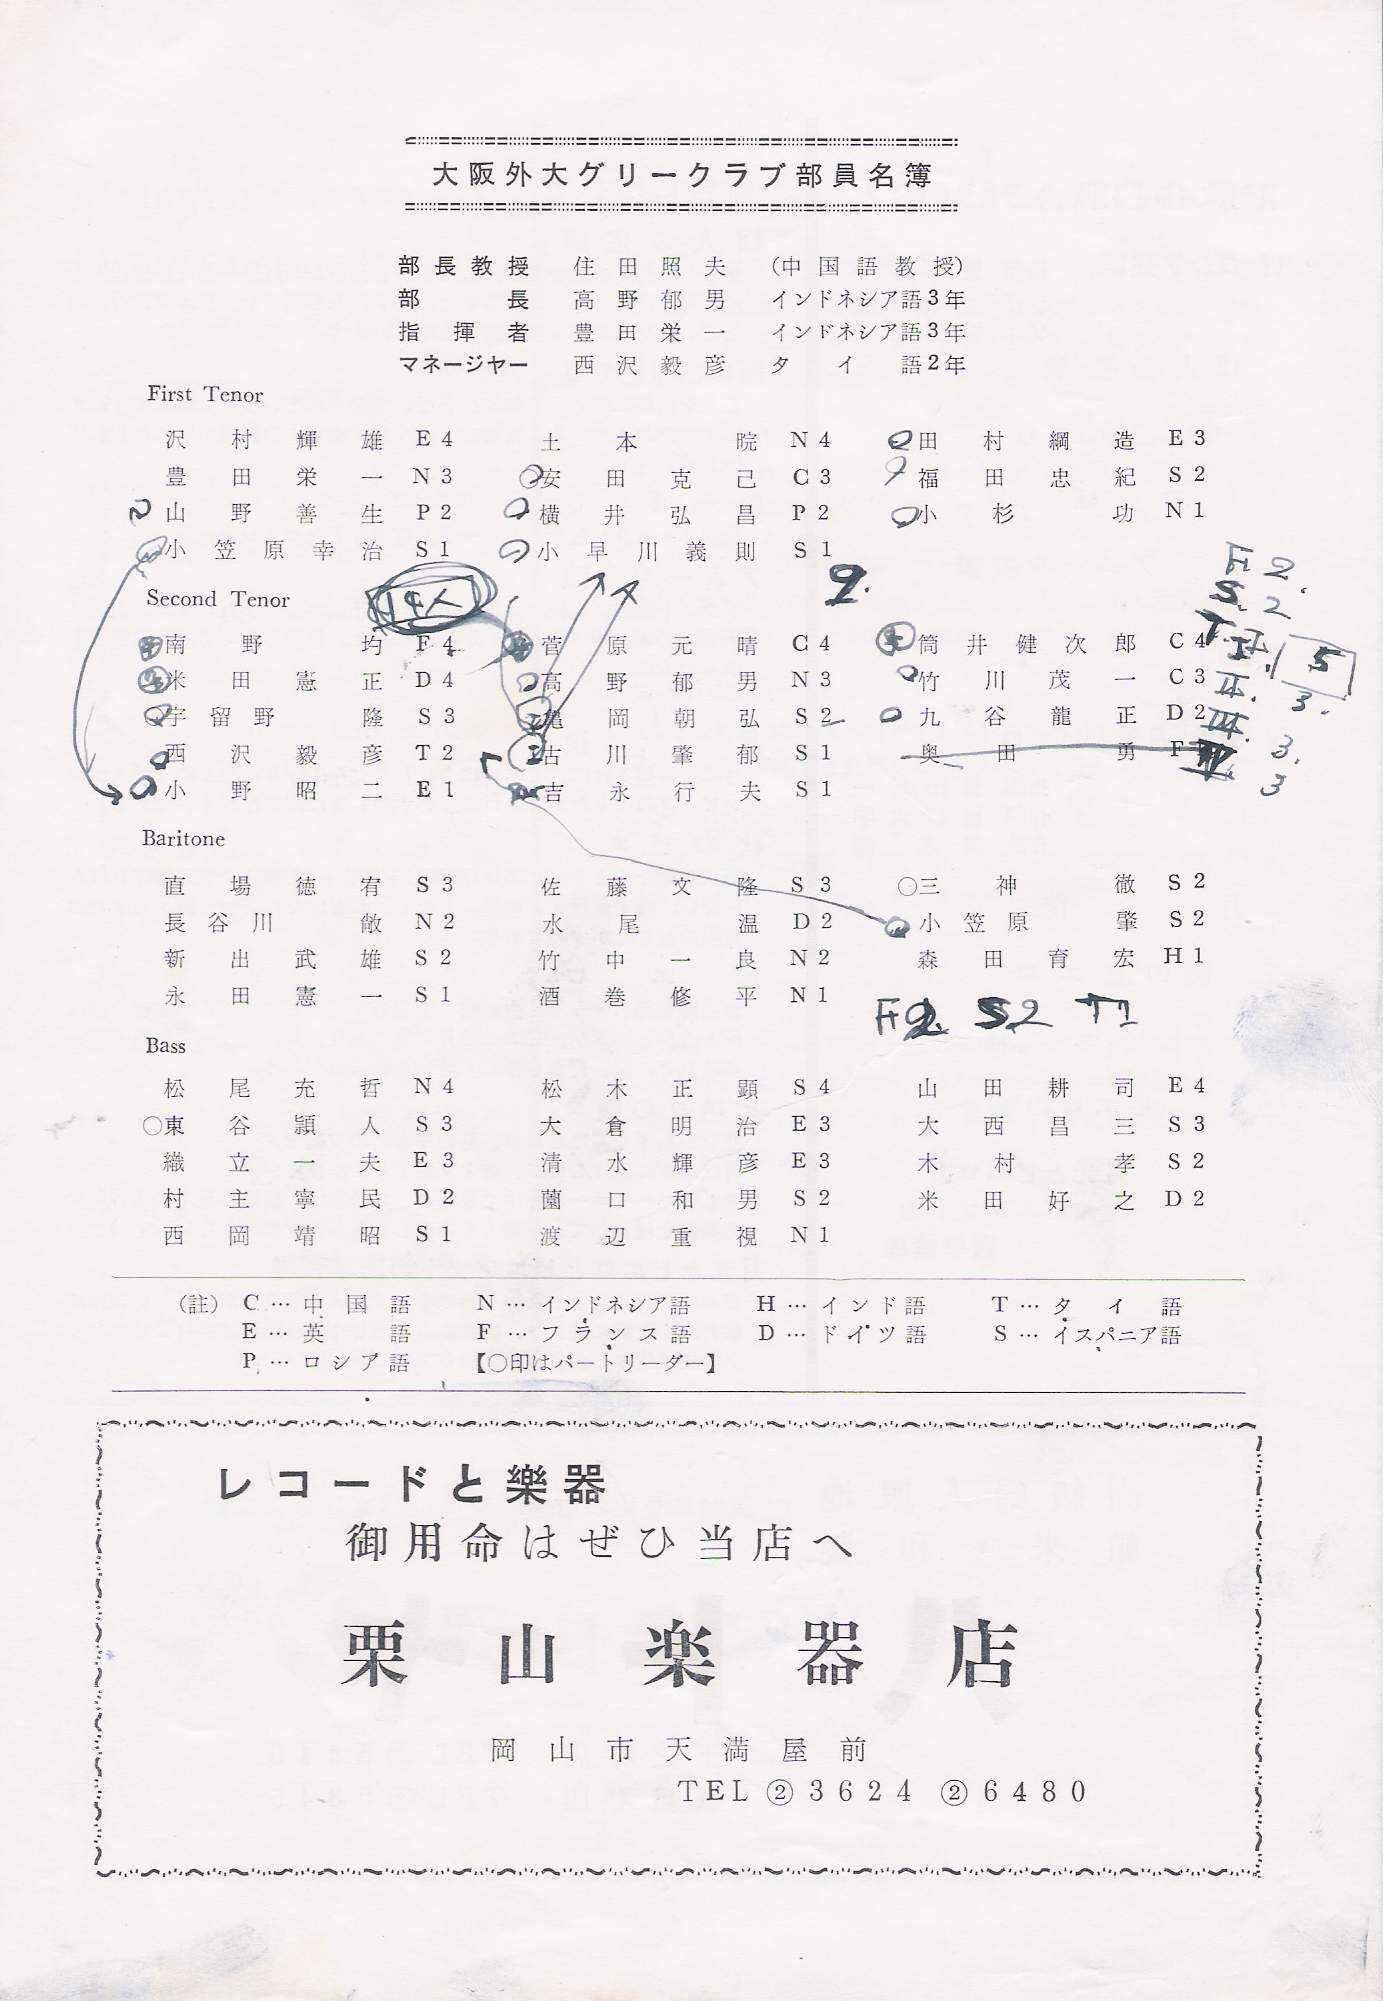 大阪外大グリークラブ部員名簿
部長教授 住田照夫 (中国語教授)
部長 高野郁男 インドネシア語3年
指揮者 豊田栄一 インドネシア語3年
マネージャー 西沢毅彦 タイ語2年
First Tenor
沢村輝雄 E4 土本院 N4 田村綱造 E3
豊田栄一 N3 ○安田克己 C3 福田忠紀 S2
山野善生 P2 横井弘昌 P2 小杉功 N1
小笠原幸治 S1 小早川義則 S1
F 2.
9.
S. 2
Second Tenor 14人
T I. 5
南野均 F4 菅原元晴 C4 筒井健次郎 C4
米田憲正 D4 高野郁男 N3 竹川茂一 C3 II. 3.
○宇留野隆 S3 亀岡朝弘 S2 九谷龍正 D2 III. 3.
西沢毅彦 T2 古川肇郁 S1 奥田勇 F IV 3
小野昭二 E1 吉永行夫 S1
Baritone
直場徳宥 S3 佐藤文隆 S3 ○三神徹 S2
長谷川敞 N2 水尾温 D2 小笠原肇 S2
新出武雄 S2 竹中一良 N2 森田育宏 H1
永田憲一 S1 酒巻修平 N1
F2. S2 T1
Bass
松尾充哲 N4 松木正顕 S4 山田耕司 E4
○東谷頴人 S3 大倉明治 E3 大西昌三 S3
織立一夫 E3 清水輝彦 E3 木村孝 S2
村主寧民 D2 薗口和男 S2 米田好之 D2
西岡靖昭 S1 渡辺重視 N1
(註) C…中国語 N…インドネシア語 H…インド語 T…タイ語
E…英語 F…フランス語 D…ドイツ語 S…イスパニア語
P…ロシア語 【○印はパートリーダー】
レコードと樂器
御用命はぜひ当店へ
栗山楽器店
岡山市天満屋前
TEL ②3624 ②6480